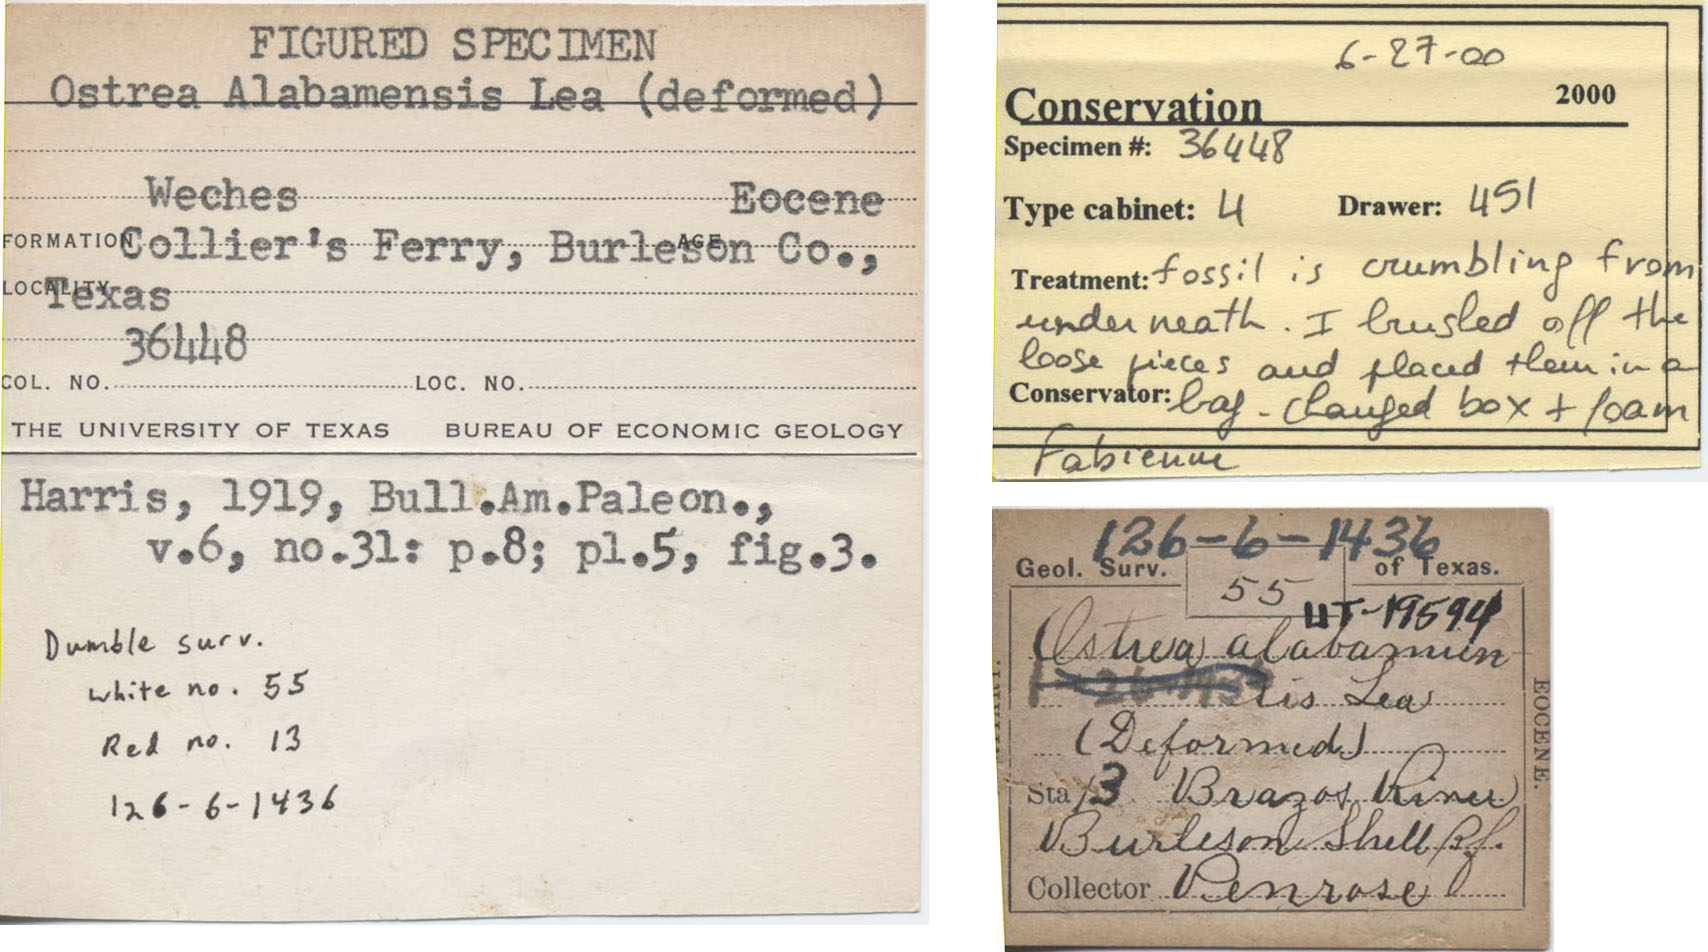 FIGURED SPECIMEN
Ostrea Alabamensis Lea (deformed)
Weches Eocene
FORMATION AGE
Collier's Ferry, Burleson Co.,
LOCALITY
Texas
36448
COL. NO. LOC. NO.
THE UNIVERSITY OF TEXAS BUREAU OF ECONOMIC GEOLOGY
Harris, 1919, Bull.Am.Paleon.,
v.6, no.31: p.8; pl.5, fig.3.
Dumble surv.
White no. 55
Red no. 13
126-6-1436
6-27-00
Conservation 2000
Specimen #: 36448
Type cabinet: 4 Drawer: 451
Treatment: fossil is crumbling from
underneath. I brushed off the
loose pieces and placed them in a
Conservator: bag - changed box + foam
Fabienne
126-6-1436
Geol. Surv. of Texas.
55
UT-19594
Ostrea alabamien
sis Lea
(Deformed)
Sta 13 Brazos River
Burleson Shell Bf.
Collector Penrose
EOCENE.